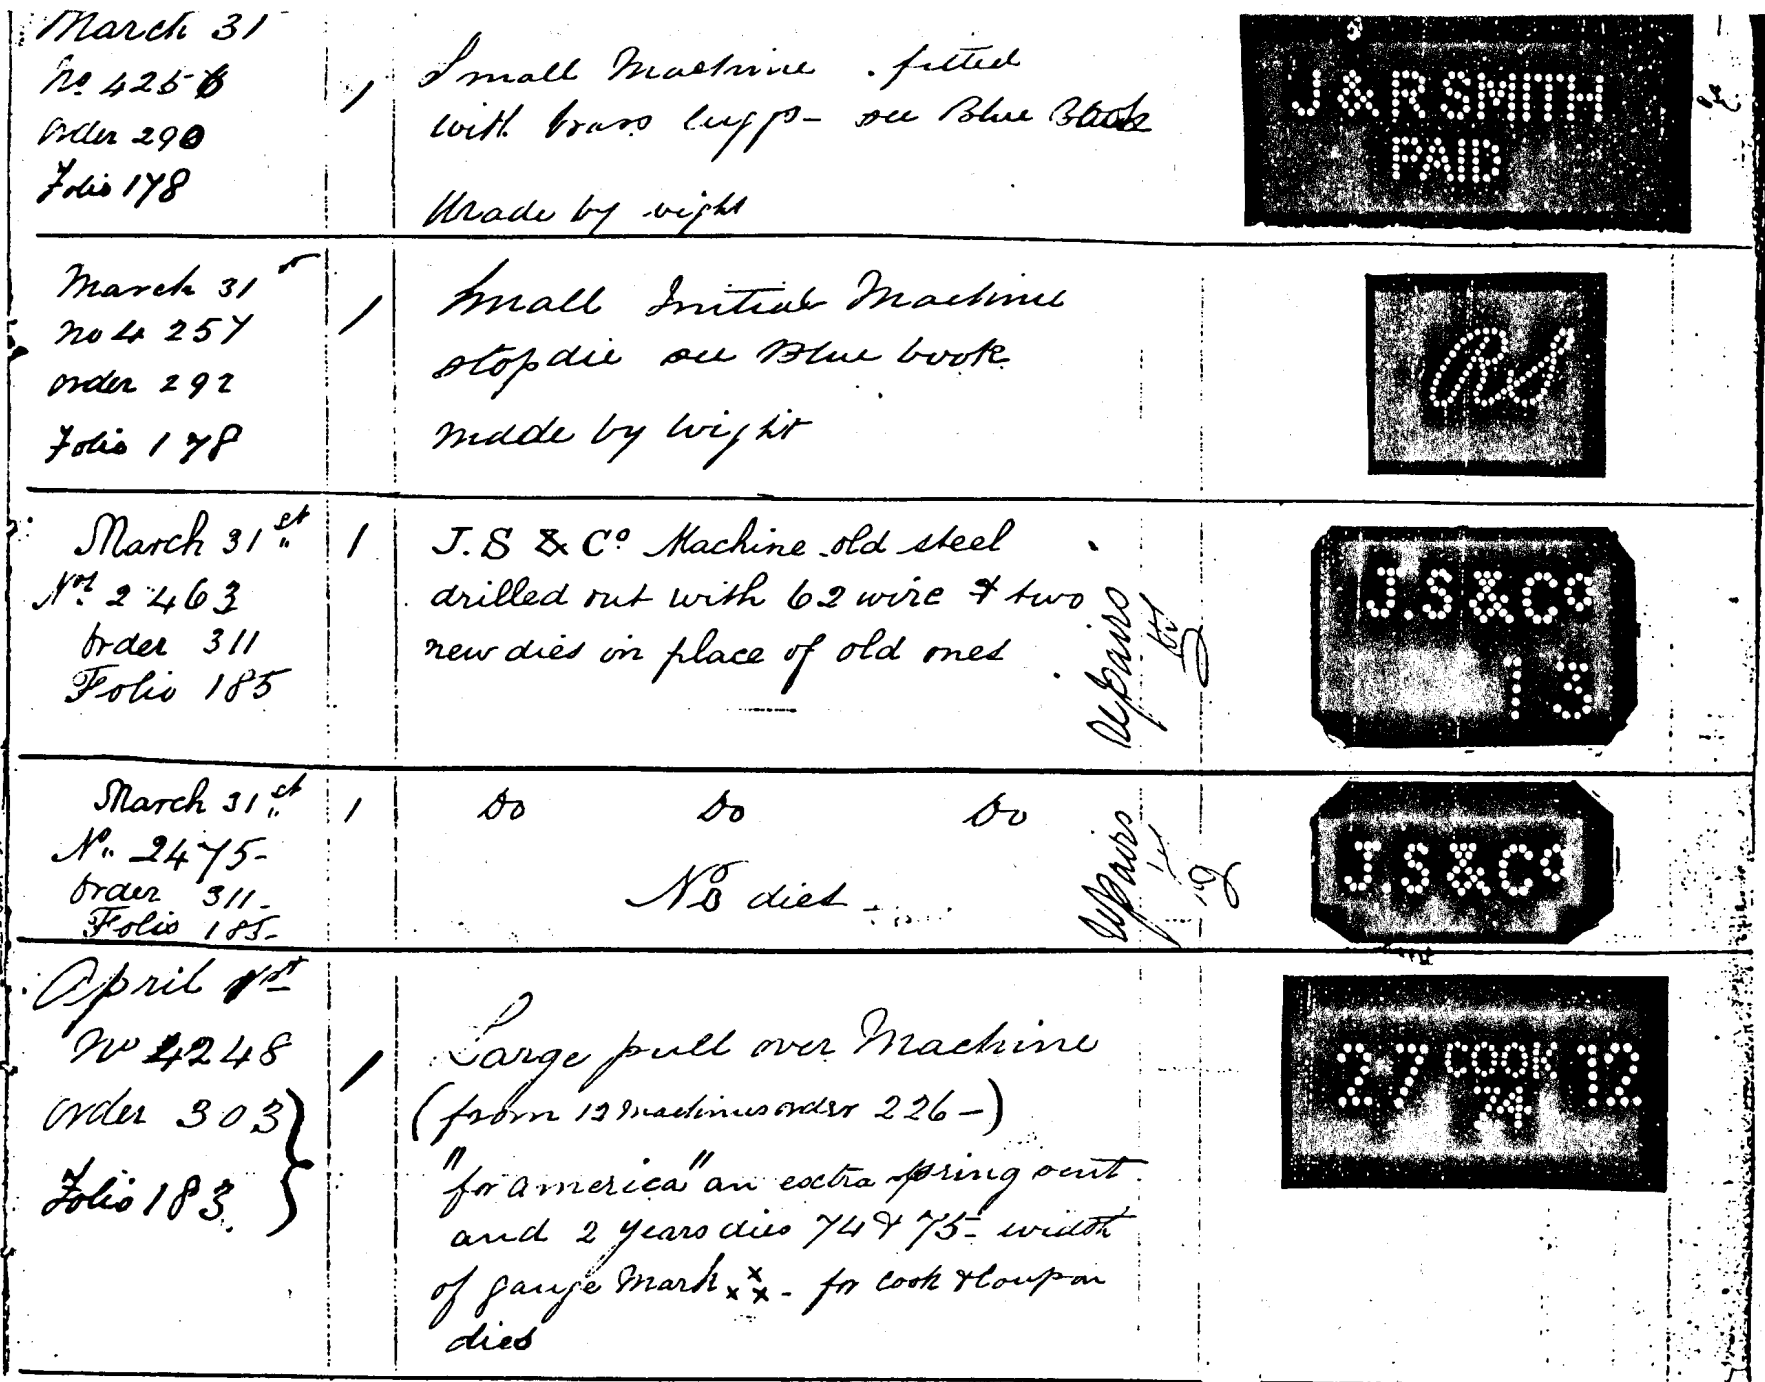 March 31
No 4256
Order 290
Folio 178
1
Small Machine . fitted
with brass luggs - see Blue Book
Made by wight
J&R SMITH
PAID
March 31st
No 4257
order 292
Folio 178
1
Small Initial Machine
stop die see Blue book
made by wight
RS
March 31st
No. 2463
Order 311
Folio 185
1
J.S & Co Machine old steel
drilled out with 62 wire & two
new dies in place of old ones
Repairs
J.S&Co
13
March 31st
No. 2475-
Order 311-
Folio 185-
1
Do Do Do
No dies
Repairs
J.S&Co
April 1st
No 4248
Order 303
Folio 183.
1
Large pull over Machine
(from 12 machines order 226-)
"for america" an extra spring sent
and 2 years dies 74 & 75- width
of gauge Mark xxx - for cook & Coupon
dies
27 COOK 12
74